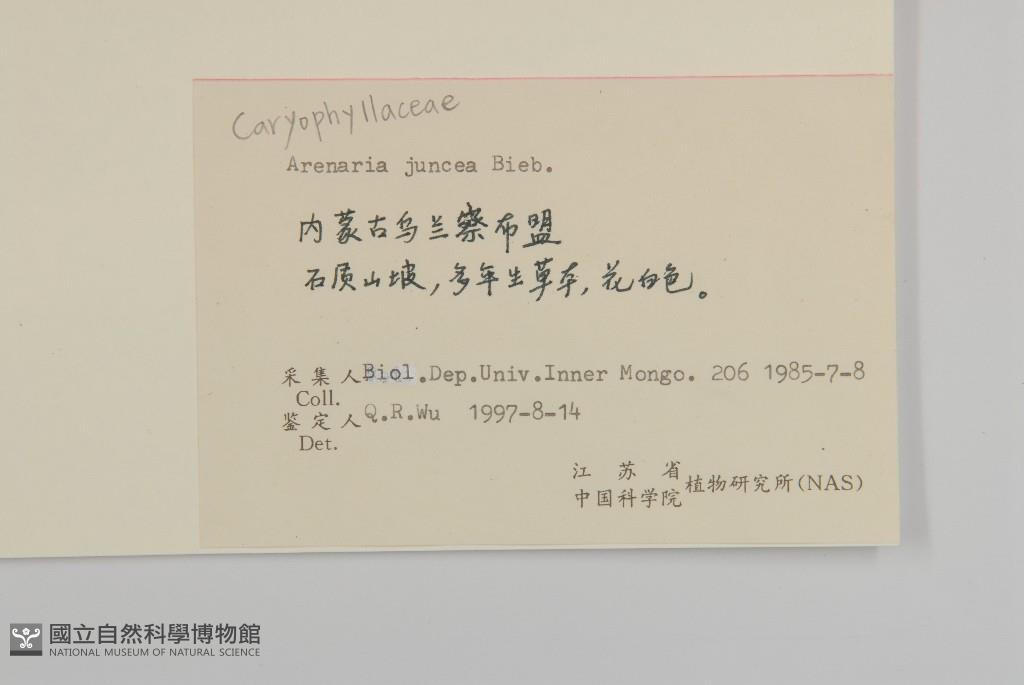 Caryophyllaceae
Arenaria juncea Bieb.
内蒙古乌兰察布盟
石质山坡，多年生草本，花白色。
采集人 Biol.Dep.Univ.Inner Mongo. 206 1985-7-8
Coll.
鉴定人 Q.R.Wu 1997-8-14
Det.
江苏省
中国科学院 植物研究所(NAS)
國立自然科學博物館
NATIONAL MUSEUM OF NATURAL SCIENCE